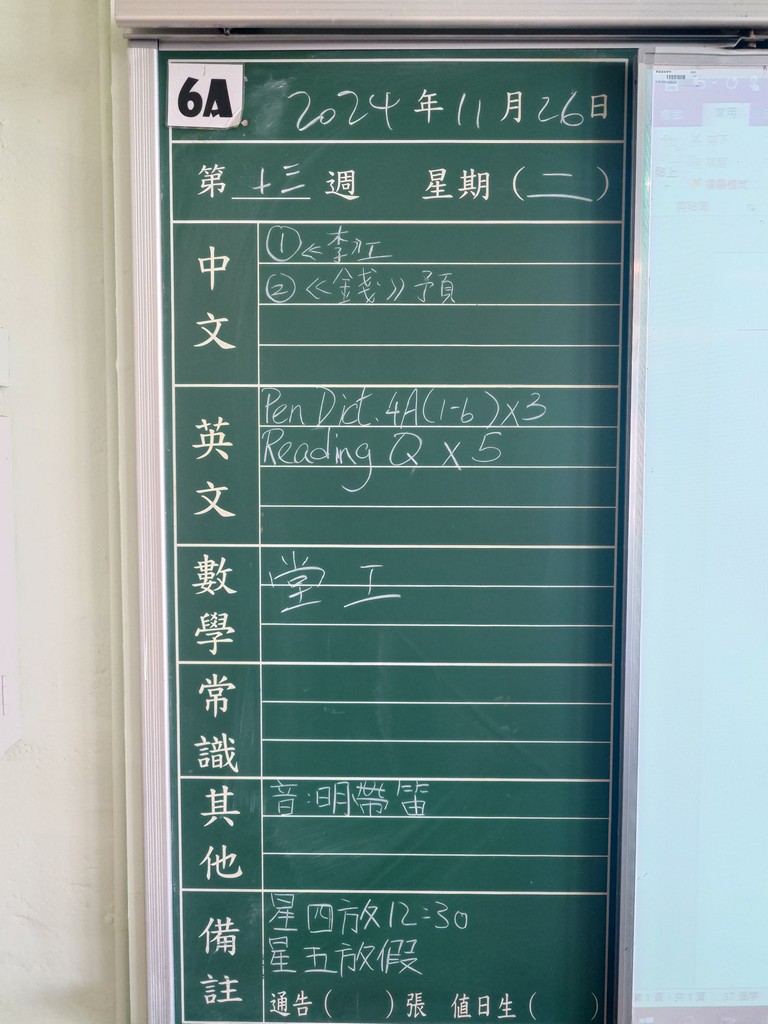 6A
2024年11月26日
第十三週 星期(二)
中文
①《李》工
②《錢》預
英文
Pen Dict. 4A(1-6)x3
Reading Q x 5
數學
堂工
常識
其他
音:明帶笛
備註
星四放12:30
星五放假
通告( )張 值日生( )